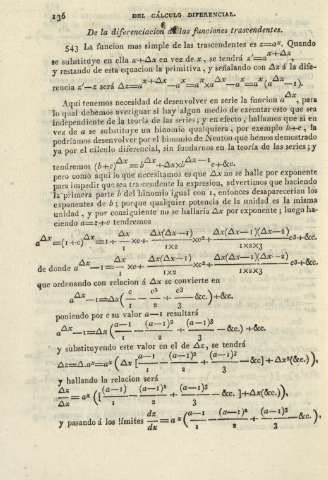 136 DEL CÁLCULO DIFERENCIAL.
De la diferenciacion de las funciones trascendentes.
543 La funcion mas simple de las trascendentes es z=aˣ. Quando
se substituye en ella x+Δx en vez de x, se tendrá z'=a^(x+Δx),
y restando de esta equacion la primitiva, y señalando con Δz la dife-
rencia z'—z será Δz=a^(x+Δx)—aˣ=aˣ×a^Δx—aˣ=aˣ(a^Δx—1).
Aqui tenemos necesidad de desenvolver en serie la funcion a^Δx, para
lo qual debemos averiguar si hay algun medio de executar esto que sea
independiente de la teoría de las series; y en efecto, hallamos que si en
vez de a se substituye un binomio qualquiera, por exemplo b+c, la
podríamos desenvolver por el binomio de Neuton que hemos demostrado
ya por el cálculo diferencial, sin fundarnos en la teoría de las series; y
tendremos (b+c)^Δx=b^Δx+Δx×b^(Δx—1)c+&c.
pero como aqui lo que necesitamos es que Δx no se halle por exponente
para impedir que sea trascendente la expresion, advertimos que haciendo
la primera parte b del binomio igual con 1, entonces desaparecerian los
exponentes de b; porque qualquier potencia de la unidad es la misma
unidad, y por consiguiente no se hallaria Δx por exponente; luego ha-
ciendo a=1+c tendremos
a^Δx=(1+c)^Δx=1+Δx/1 ×c+Δx(Δx—1)/1×2 ×c²+Δx(Δx—1)(Δx—2)/1×2×3 c³+&c.
de donde a^Δx—1=Δx/1 ×c+Δx(Δx—1)/1×2 ×c²+Δx(Δx—1)(Δx—2)/1×2×3 c³+&c.
que ordenando con relacion á Δx se convierte en
a^Δx—1=Δx(c/1—c²/2+c³/3—&c.)+&c.
poniendo por c su valor a—1 resultará
a^Δx—1=Δx((a—1)/1—(a—1)²/2+(a—1)³/3—&c.)+&c.
y substituyendo este valor en el de Δz, se tendrá
Δz=Δ.aˣ=aˣ(Δx[(a—1)/1—(a—1)²/2+(a—1)³/3—&c]+Δx²(&c.)),
y hallando la relacion será
Δz/Δx=aˣ([(a—1)/1—(a—1)²/2+(a—1)³/3—&c.]+Δx(&c.)),
y pasando á los límites dz/dx=aˣ((a—1)/1—(a—1)²/2+(a—1)³/3—&c.),